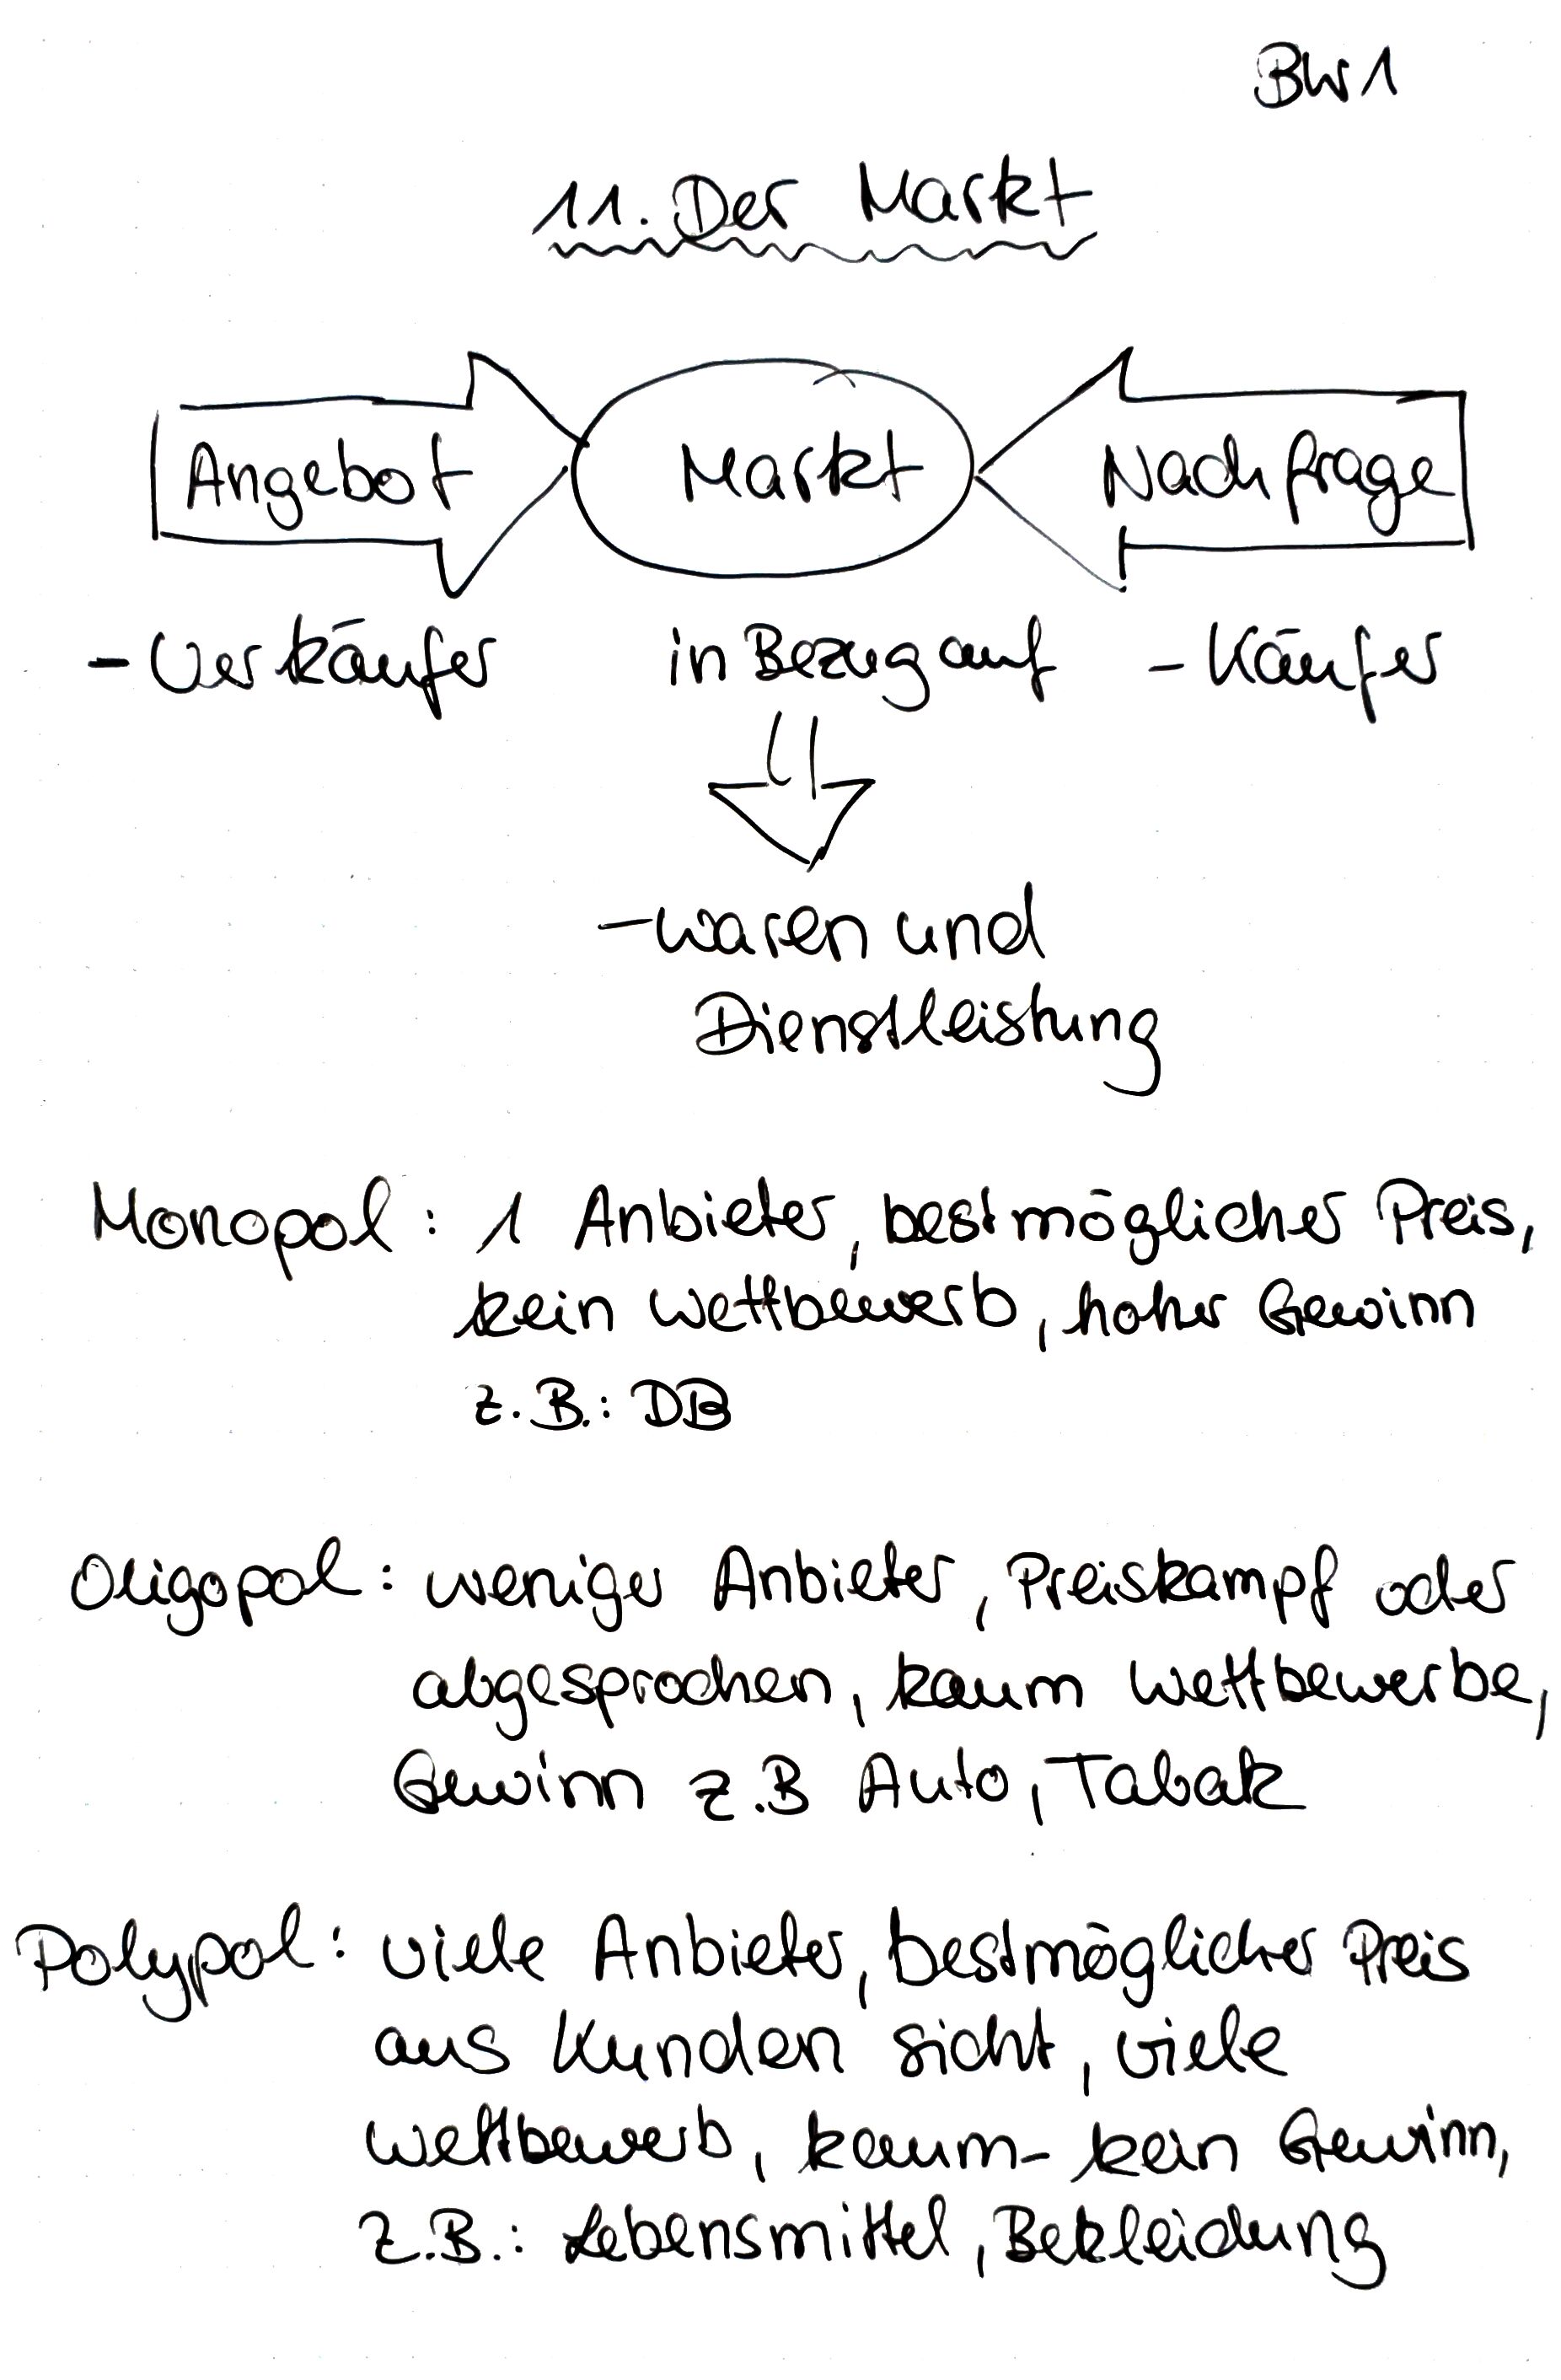 BW1
11. Der Markt
Angebot Markt Nachfrage
- Verkäufer in Bezug auf - Käufer
- waren und
Dienstleistung
Monopol: 1 Anbieter, bestmöglicher Preis,
kein Wettbewerb, hoher Gewinn
z.B.: DB
Oligopol: weniger Anbieter, Preiskampf oder
abgesprochen, kaum Wettbewerbe,
Gewinn z.B Auto, Tabak
Polypol: viele Anbieter, bestmöglicher Preis
aus Kunden sicht, viele
Wettbewerb, kaum- kein Gewinn,
z.B.: Lebensmittel, Bekleidung